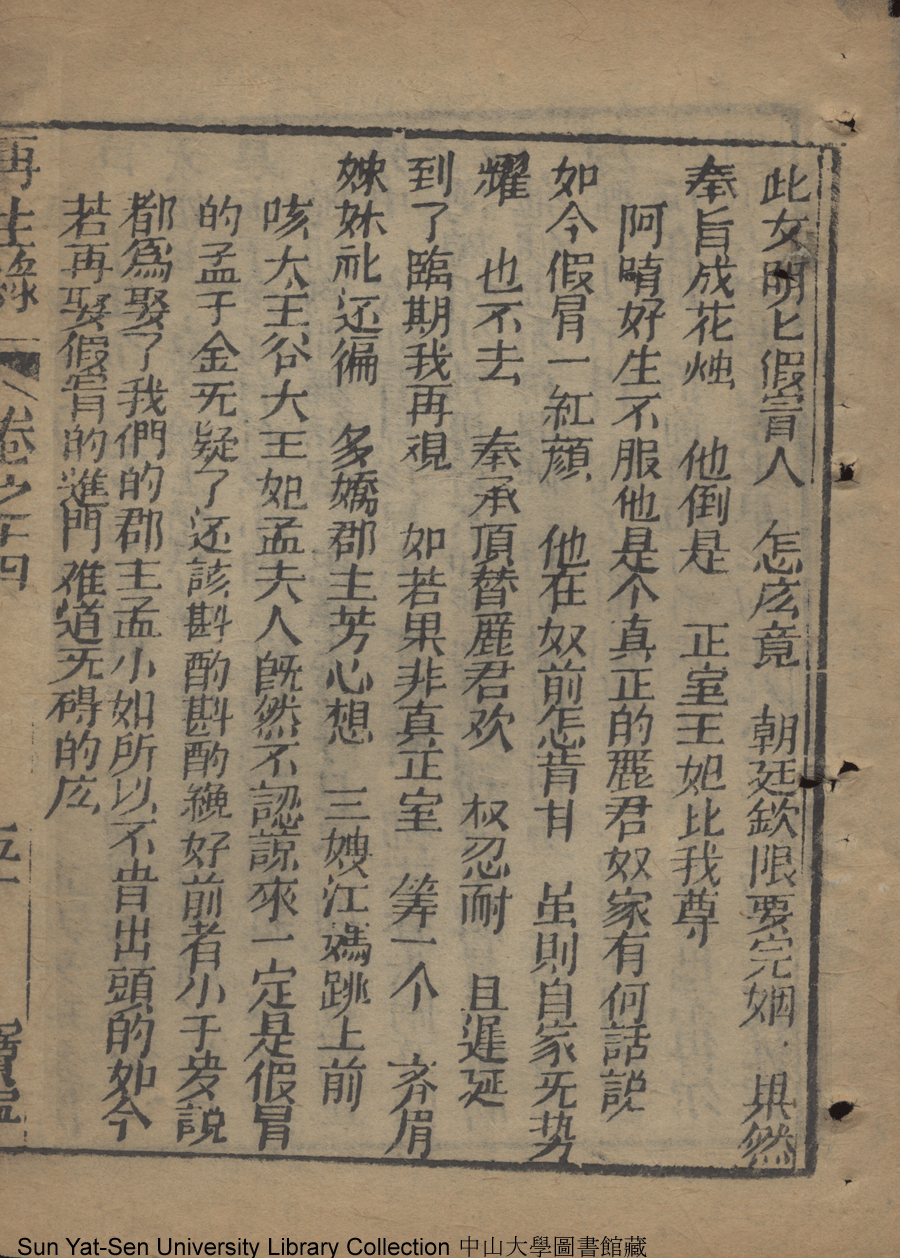 此女明匕假冒人　怎庅竟　朝廷欽限要完姻　果然
奉旨成花烛　他倒是　正室王妃比我尊
阿唷好生不服他是个真正的麗君奴家有何話説
如今假冒一紅顔　他在奴前怎肯甘　虽則自家旡势
耀　也不去　奉承頂替麗君欢　权忍耐　且遲延
到了臨期我再覌　如若果非真正室　筭一个　齐眉
姊妹礼还徧　多嬌郡主芳心想　三嫂江媽跳上前
咳大王谷大王妃孟夫人既然不認説來一定是假冒
的孟千金旡疑了还該斟酌斟酌纔好前者小千歲説
都爲娶了我們的郡主孟小如所以不肯出頭的如今
若再娶假冒的進門难道旡碍的庅
再生緣　卷之十四
Sun Yat-Sen University Library Collection 中山大學圖書館藏